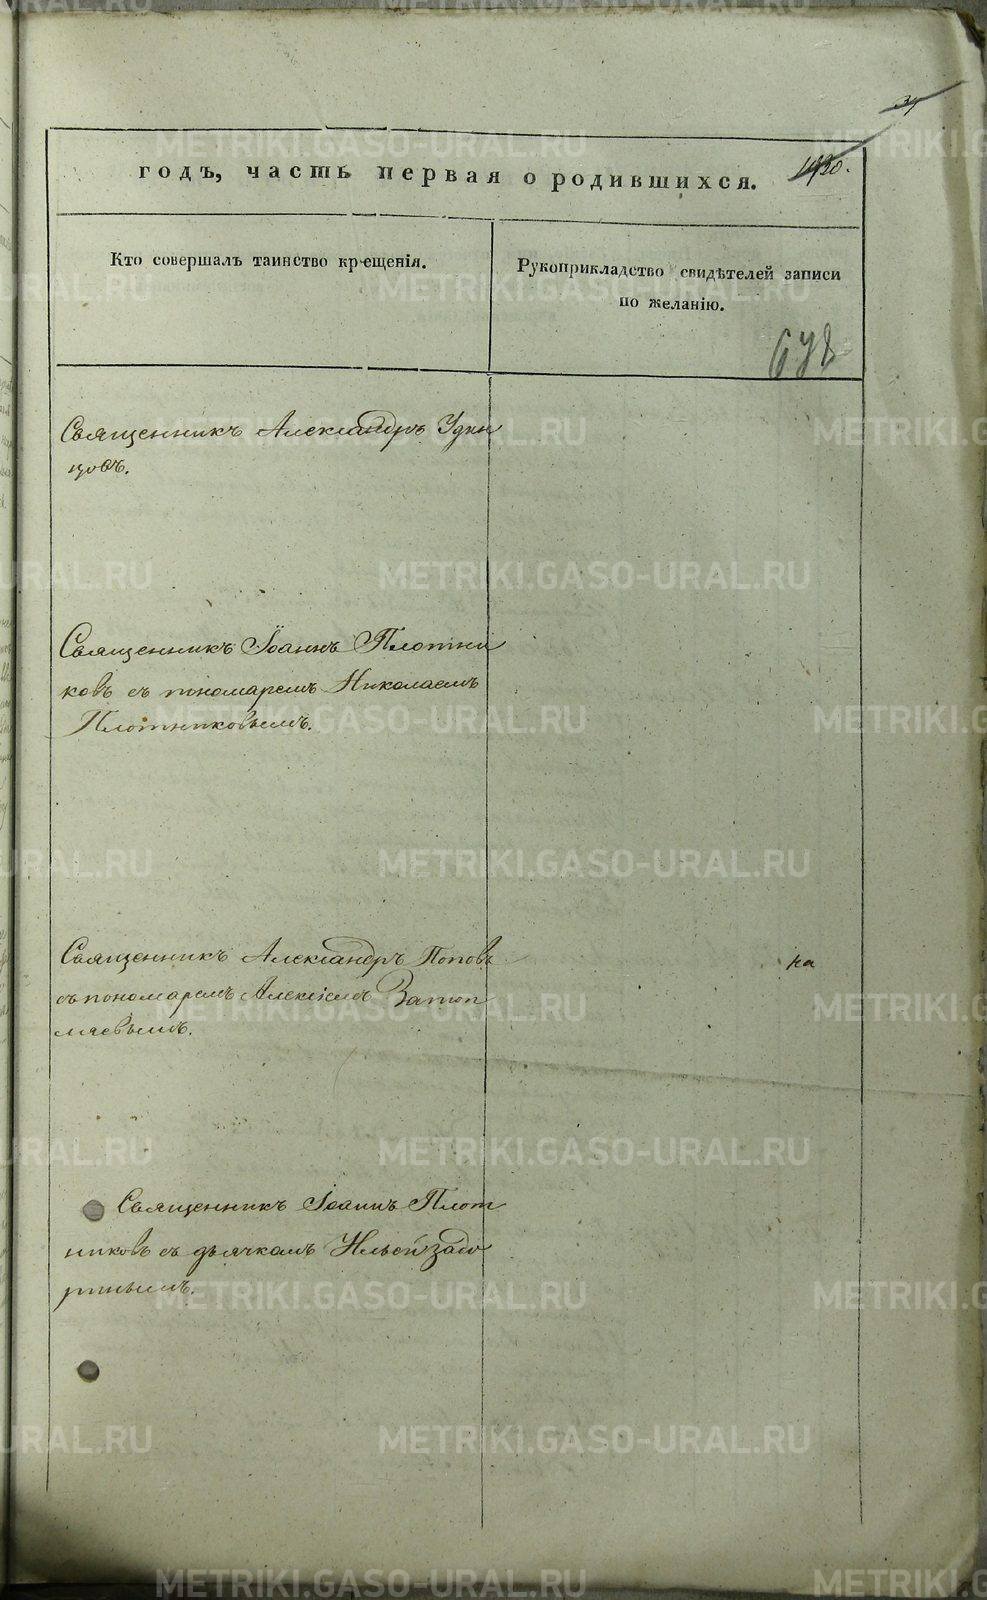 годъ, часть первая о родившихся.
Кто совершалъ таинство крещенія.
Рукоприкладство свидѣтелей записи
по желанію.
678
Священникъ Александръ Удин
цовъ.
Священникъ Іоаннъ Плотни
ковъ съ пономаремъ Николаемъ
Плотниковымъ.
Священникъ Александръ Поповъ
съ пономаремъ Алексіемъ
на
Священникъ Іоаннъ Плот
никовъ съ дьячкомъ Ильей Задо
ринымъ.
METRIKI.GASO-URAL.RU